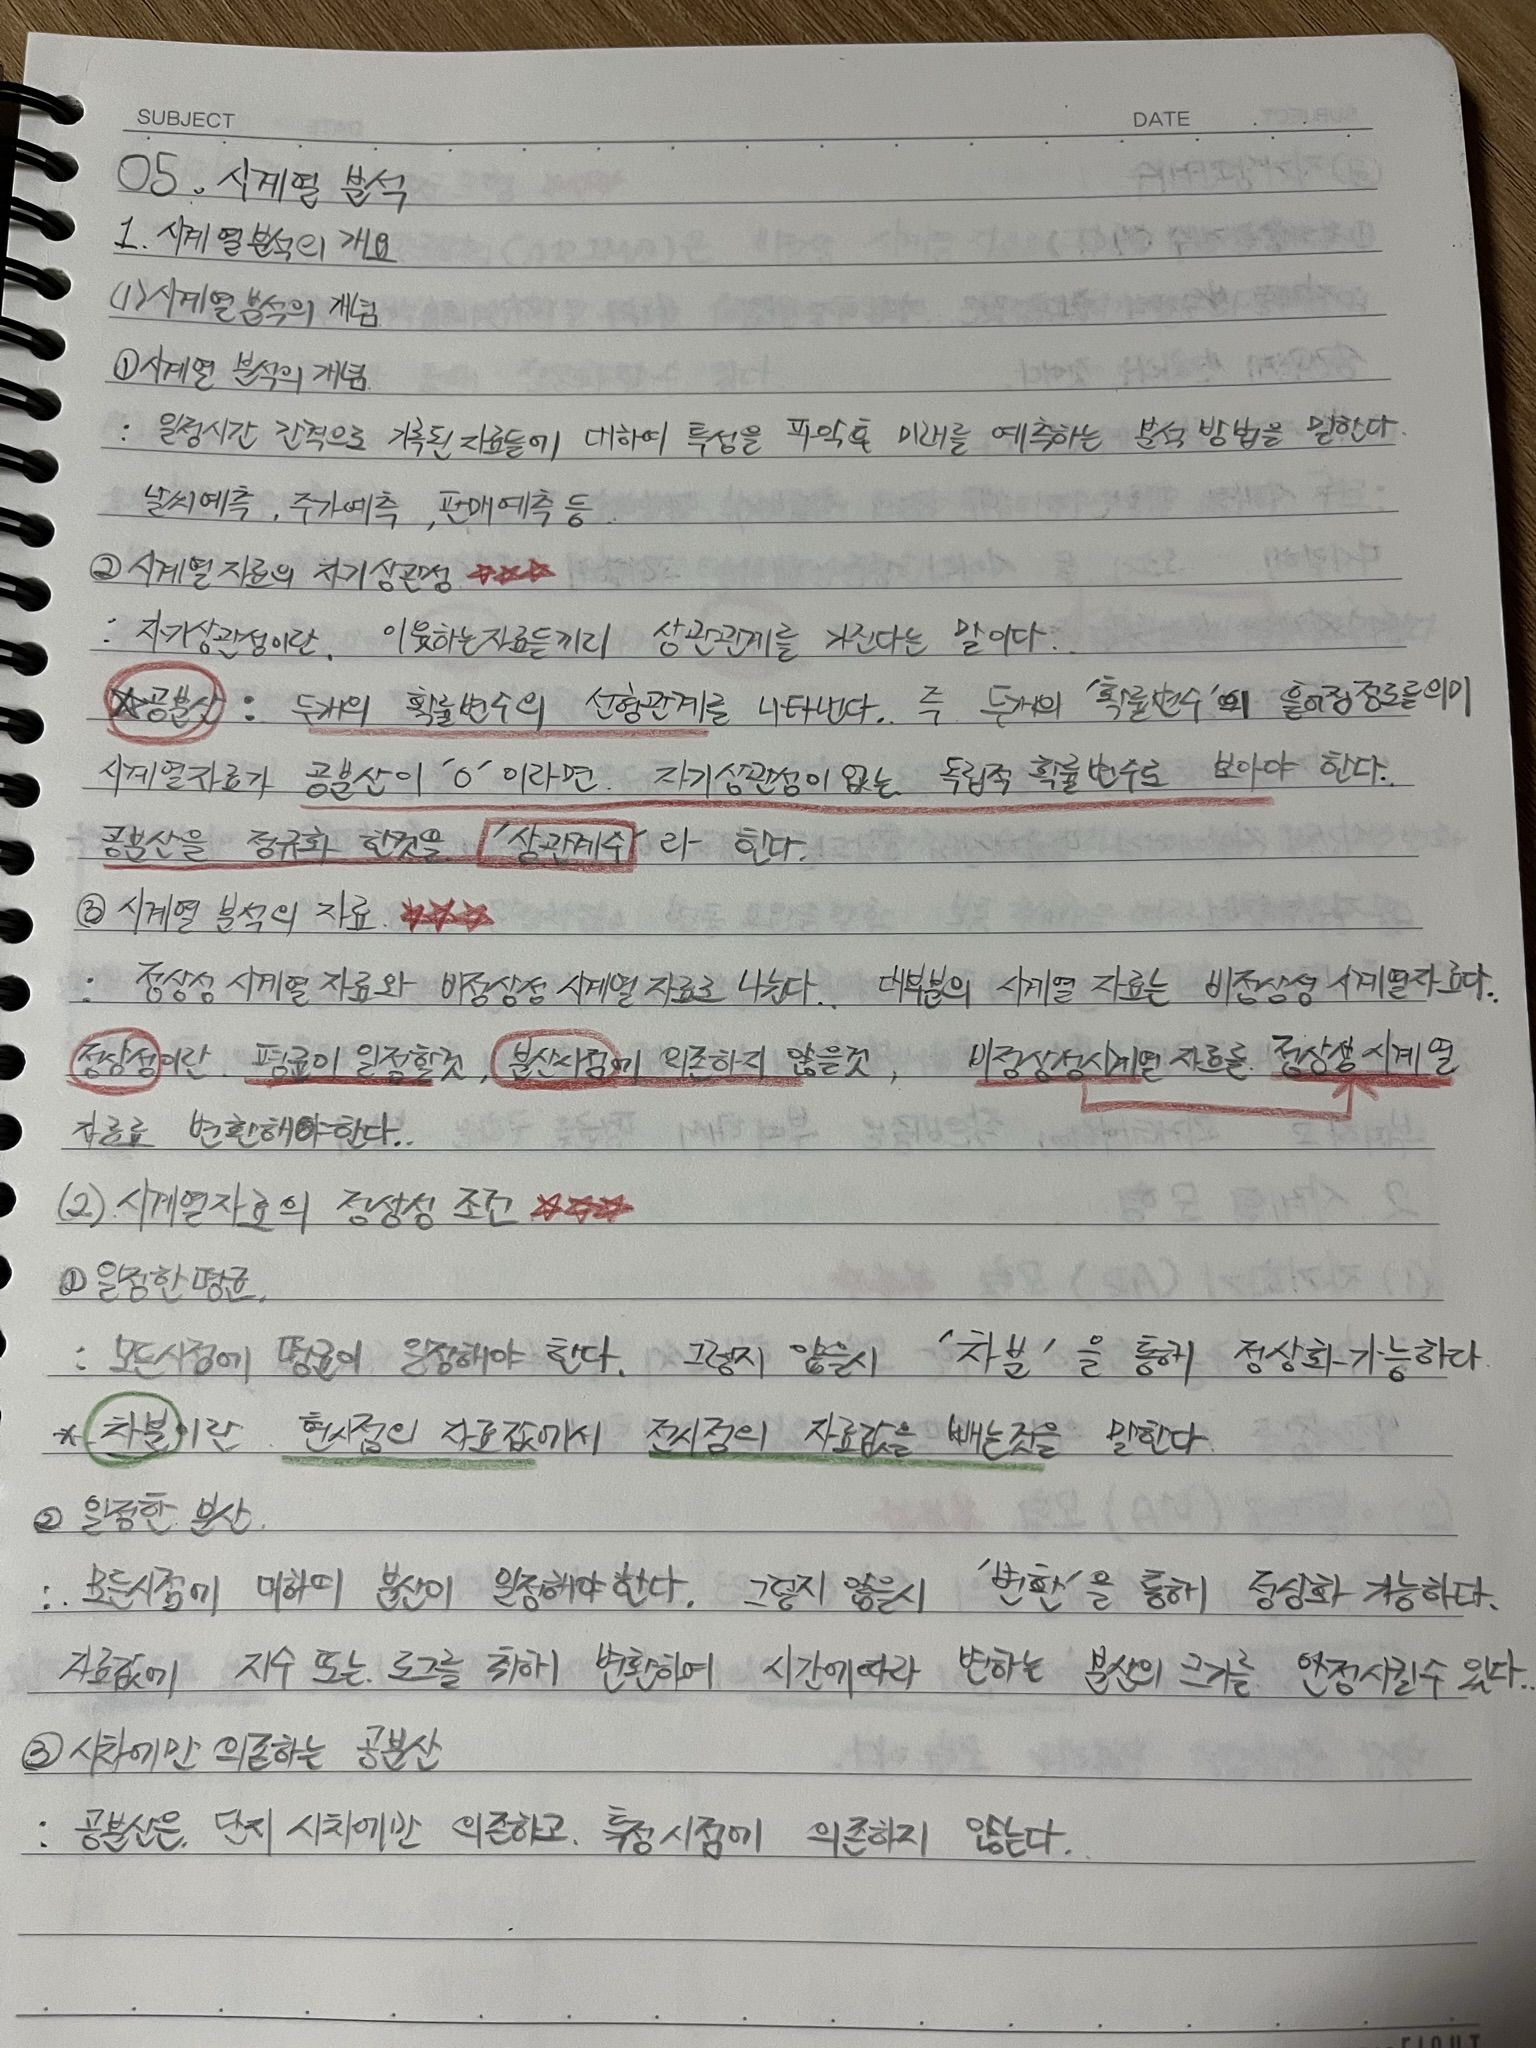 SUBJECT DATE
05. 시계열 분석
1. 시계열분석의 개요
(1) 시계열 분석의 개념
① 시계열 분석의 개념
: 일정시간 간격으로 기록된 자료들에 대하여 특성을 파악후 미래를 예측하는 분석 방법을 말한다.
날씨예측, 주가예측, 판매예측 등.
② 시계열자료의 자기상관성 ☆☆☆
: 자기상관성이란, 이웃하는자료들끼리 상관관계를 가진다는 말이다.
★공분산 : 두개의 확률변수의 선형관계를 나타낸다. 즉 두개의 '확률변수'의 흩어짐정도를의미
시계열자료가 공분산이 '0' 이라면. 자기상관성이 없는 독립적 확률변수로 보아야 한다.
공분산을 정규화 한것을 '상관계수' 라 한다.
③ 시계열 분석의 자료 ☆☆☆
: 정상성 시계열 자료와 비정상성 시계열자료로 나눈다. 대부분의 시계열 자료는 비정상성 시계열자료다.
정상성이란. 평균이 일정할것, 분산시점에 의존하지 않을것, 비정상성시계열 자료를 정상성 시계열
자료로 변환해야한다..
(2) 시계열자료의 정상성 조건 ☆☆☆
① 일정한 평균.
: 모든시점에 평균이 일정해야 한다. 그렇지 않을시 '차분' 을 통해 정상화 가능하다
* 차분이란 현시점의 자료값에서 전시점의 자료값을 빼는것을 말한다
② 일정한 분산.
: 모든시점에 대하여 분산이 일정해야한다. 그렇지 않을시 '변환'을 통해 정상화 가능하다.
자료값에 지수 또는 로그를 취해 변환하여 시간에따라 변하는 분산의 크기를 안정시킬수 있다..
③ 시차에만 의존하는 공분산
: 공분산은. 단지 시차에만 의존하고. 특정시점에 의존하지 않는다.